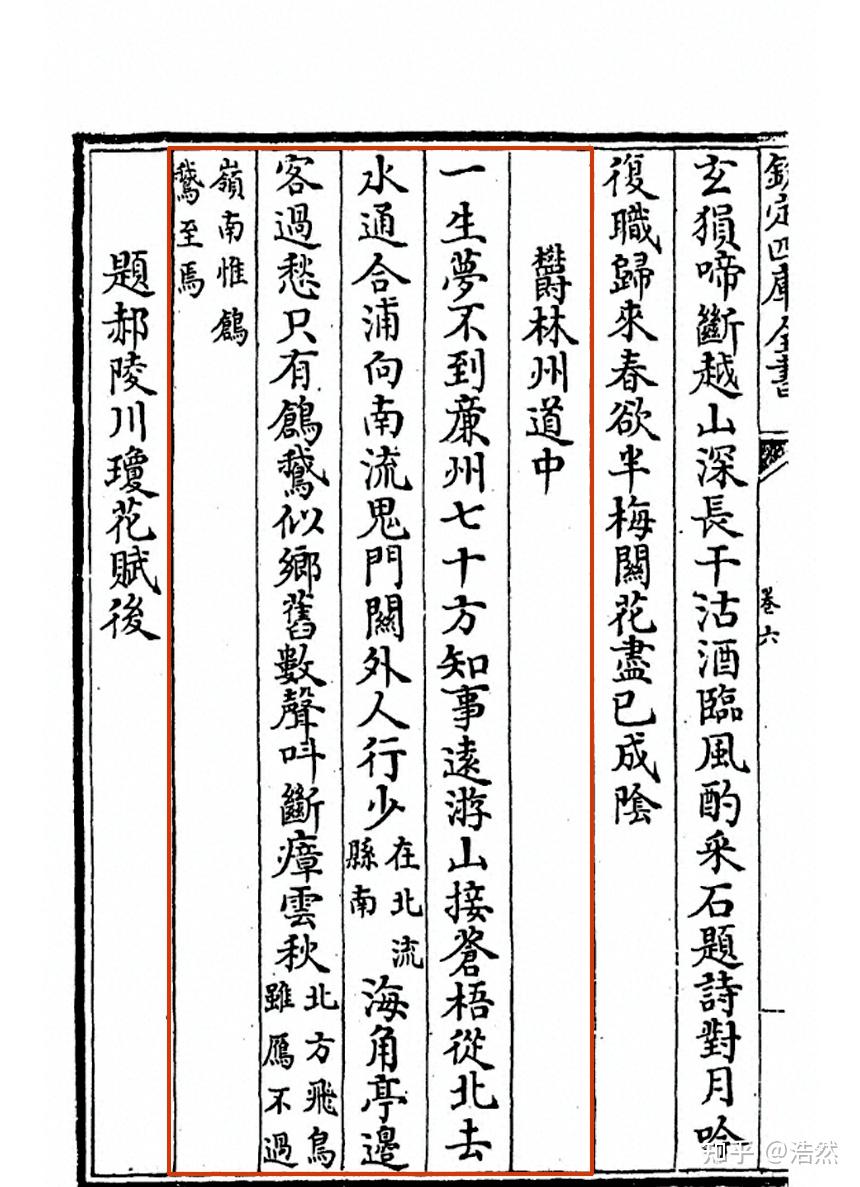 欽定四庫全書
卷六
玄猨啼斷越山深長干沽酒臨風酌采石題詩對月吟
復職歸來春欲半梅關花盡已成陰
欝林州道中
一生夢不到廉州七十方知事遠游山接蒼梧從北去
水通合浦向南流鬼門關外人行少在北流縣南海角亭邊
客過愁只有鶬鵝似鄉舊數聲呌斷瘴雲秋北方飛鳥雖鴈不過
嶺南惟鶬鵝至焉
題郝陵川瓊花賦後
知乎 @浩然